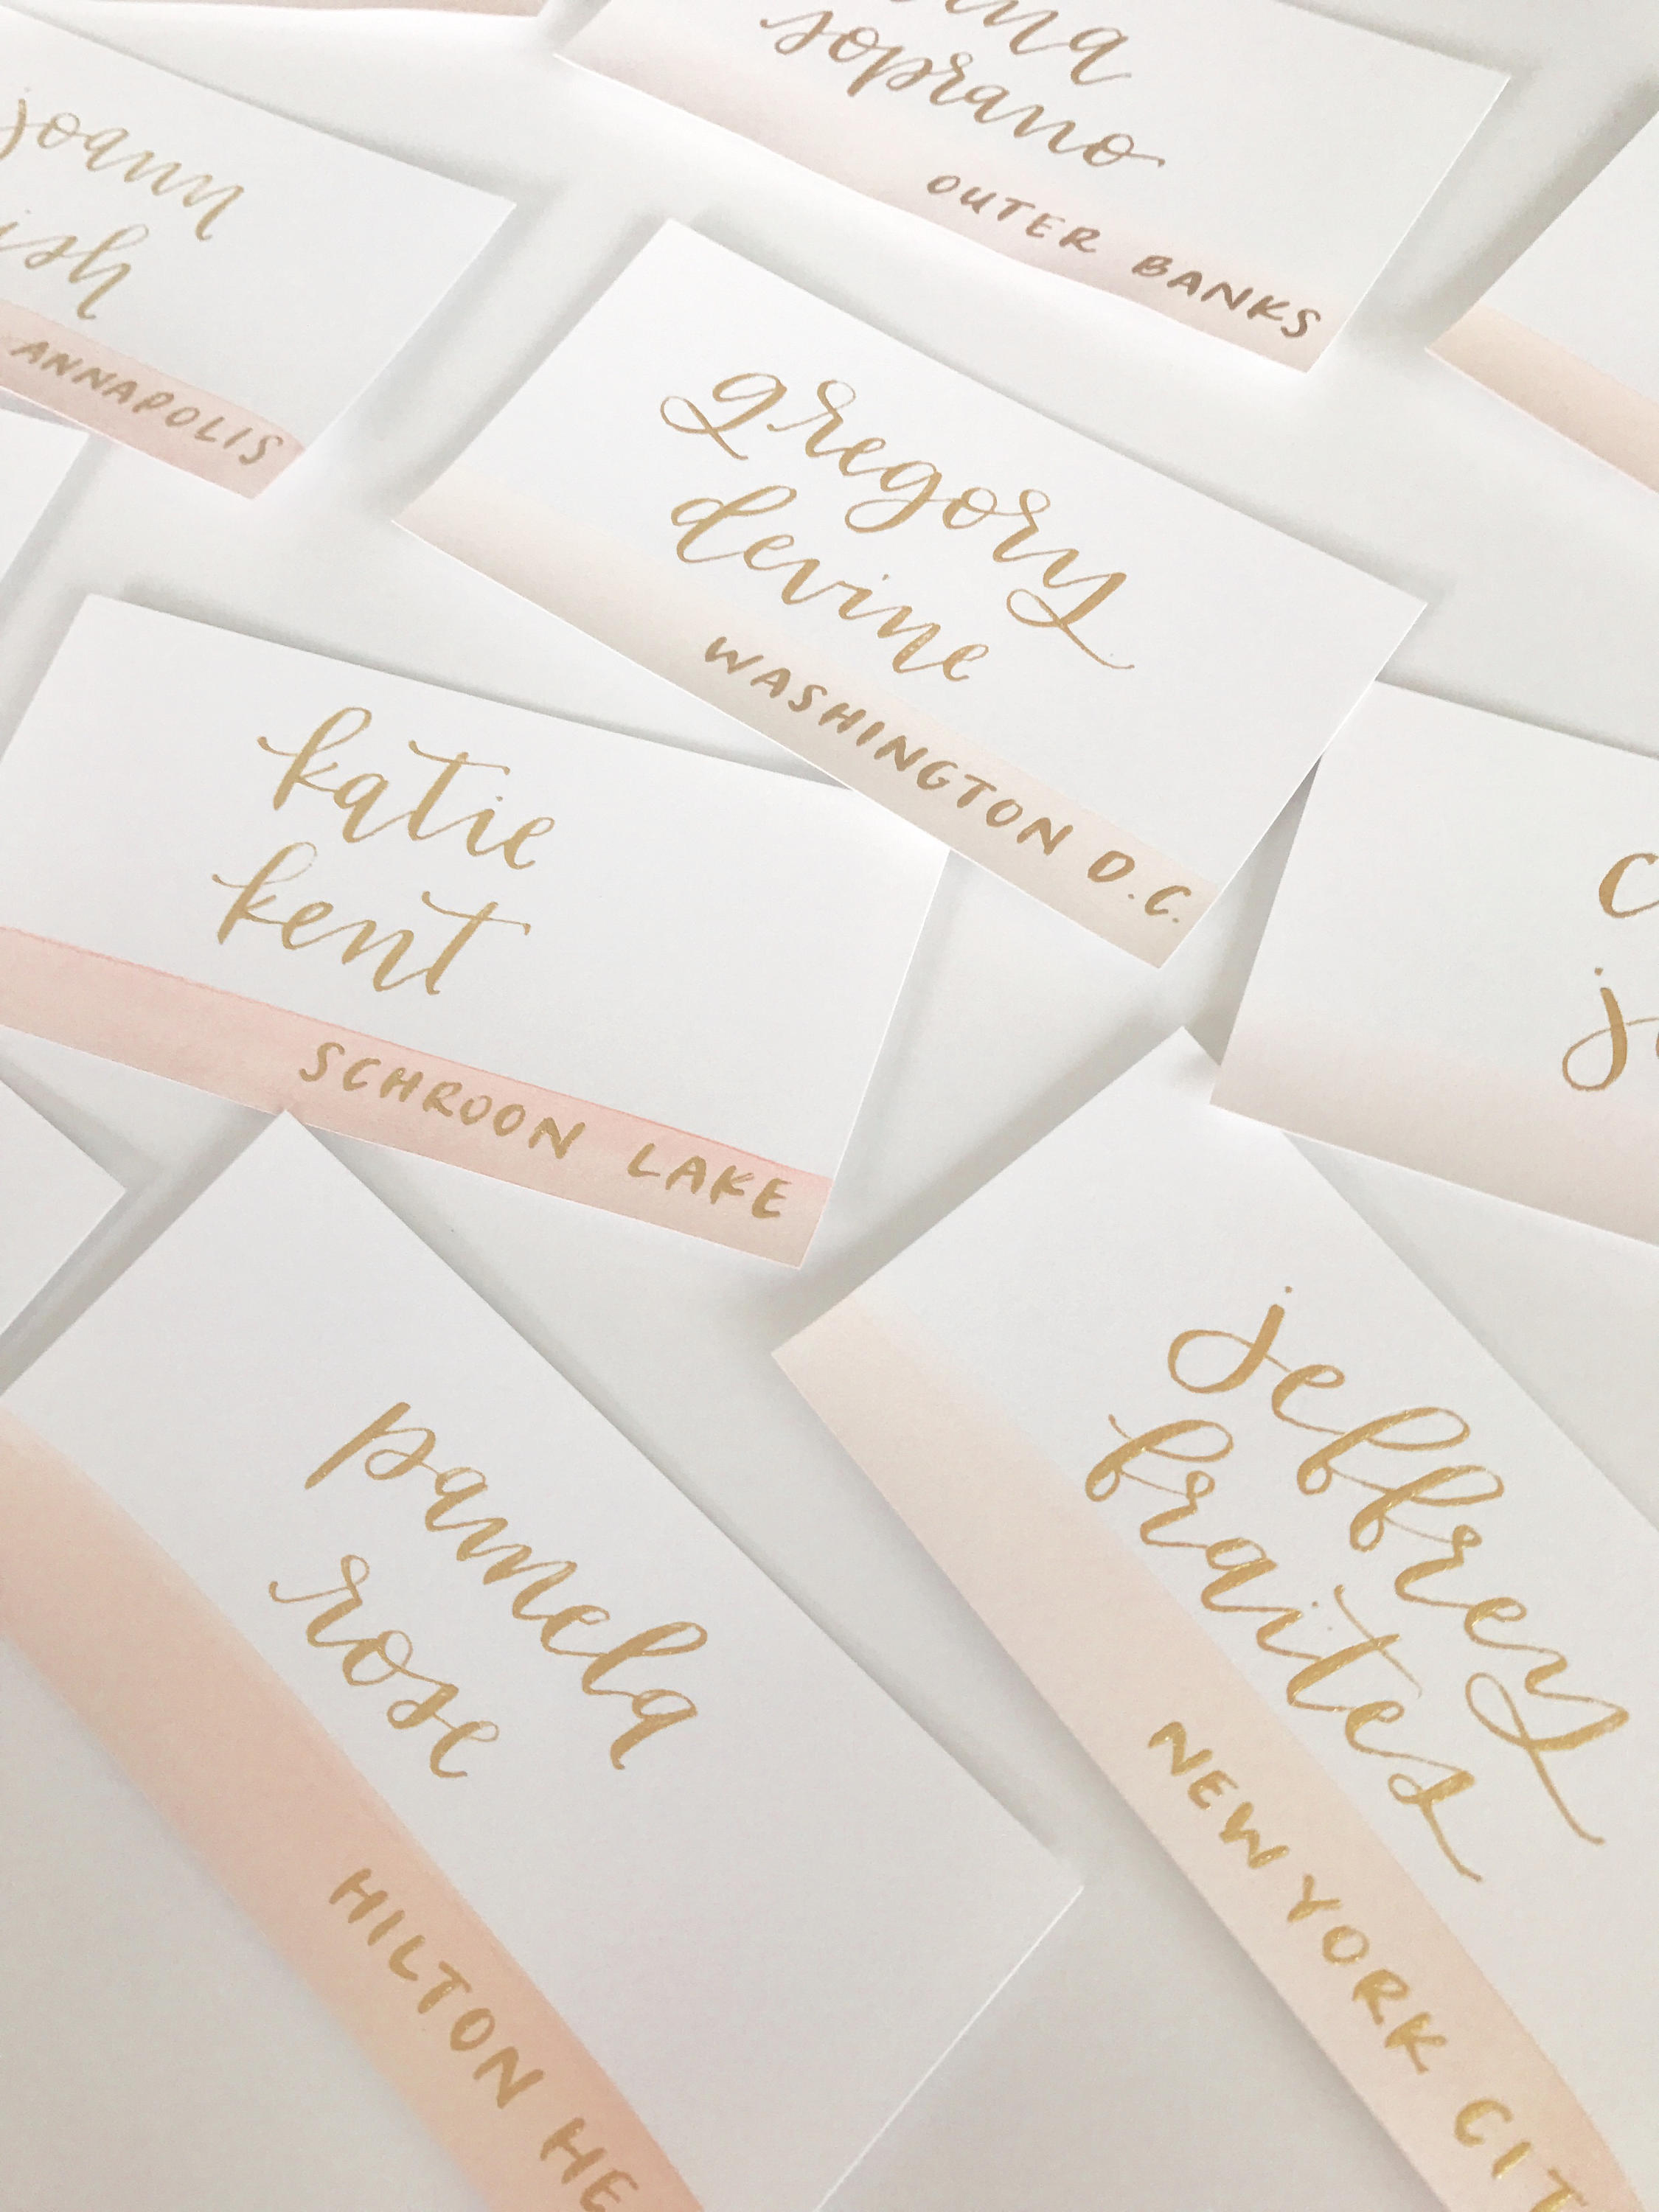 soprano
OUTER BANKS
joann
ANNAPOLIS
gregory
devine
WASHINGTON D.C.
katie
kent
SCHROON LAKE
pamela
rose
HILTON HE
jeffrey
fraites
NEW YORK CIT